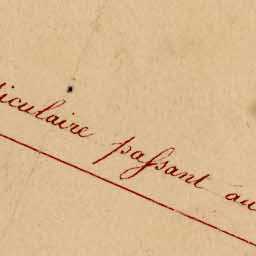 iculaire passant au